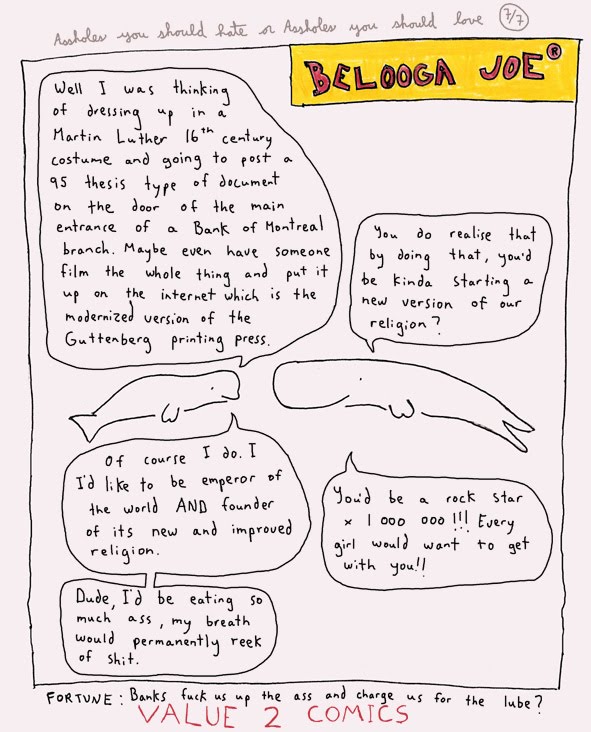 Assholes you should hate or Assholes you should love 7/7
BELOOGA JOE®
Well I was thinking
of dressing up in a
Martin Luther 16th century
costume and going to post a
95 thesis type of document
on the door of the main
entrance of a Bank of Montreal
branch. Maybe even have someone
film the whole thing and put it
up on the internet which is the
modernized version of the
Guttenberg printing press.
You do realise that
by doing that, you'd
be kinda starting a
new version of our
religion?
Of course I do. I
I'd like to be emperor of
the world AND founder
of its new and improved
religion.
You'd be a rock star
x 1 000 000 !!! Every
girl would want to get
with you!!
Dude, I'd be eating so
much ass, my breath
would permanently reek
of shit.
FORTUNE: Banks fuck us up the ass and charge us for the lube?
VALUE 2 COMICS